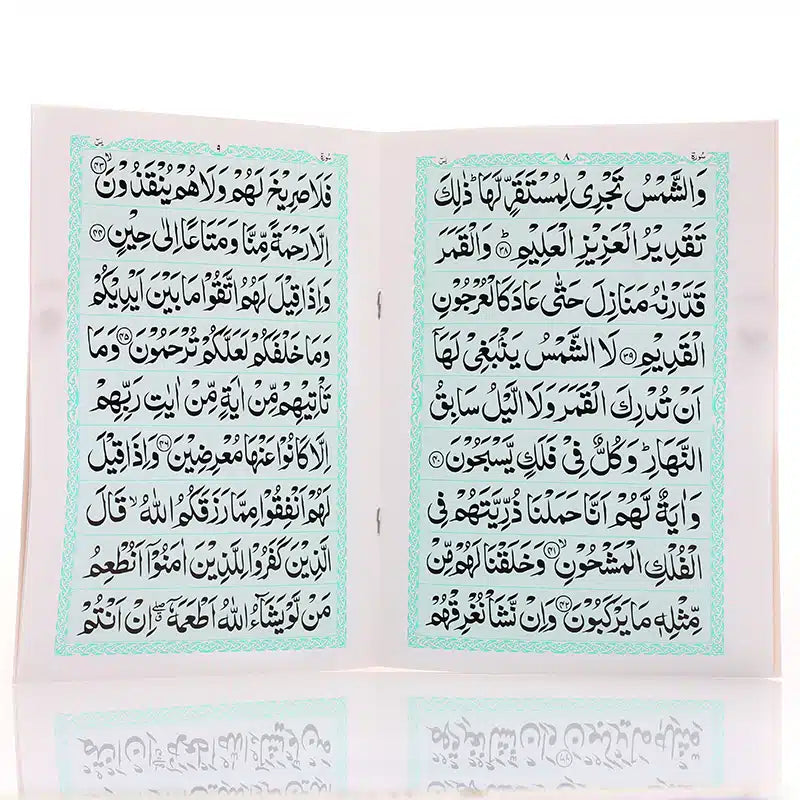 سُوْرَة ٨ يٰسٓ
وَالشَّمْسُ تَجْرِىْ لِمُسْتَقَرٍّ لَّهَا ؕ ذٰلِكَ
تَقْدِيْرُ الْعَزِيْزِ الْعَلِيْمِ ؕ ﴿٣٨﴾ وَالْقَمَرَ
قَدَّرْنٰهُ مَنَازِلَ حَتّٰى عَادَ كَالْعُرْجُوْنِ
الْقَدِيْمِ ﴿٣٩﴾ لَا الشَّمْسُ يَنْۢبَغِىْ لَهَاۤ
اَنْ تُدْرِكَ الْقَمَرَ وَلَا الَّيْلُ سَابِقُ
النَّهَارِ ؕ وَكُلٌّ فِىْ فَلَكٍ يَّسْبَحُوْنَ ﴿٤٠﴾
وَاٰيَةٌ لَّهُمْ اَنَّا حَمَلْنَا ذُرِّيَّتَهُمْ فِى
الْفُلْكِ الْمَشْحُوْنِ ۙ ﴿٤١﴾ وَخَلَقْنَا لَهُمْ مِّنْ
مِّثْلِهٖ مَا يَرْكَبُوْنَ ﴿٤٢﴾ وَاِنْ نَّشَاْ نُغْرِقْهُمْ
سُوْرَة يٰسٓ
فَلَا صَرِيْخَ لَهُمْ وَلَا هُمْ يُنْقَذُوْنَ ۙ ﴿٤٣﴾
اِلَّا رَحْمَةً مِّنَّا وَمَتَاعًا اِلٰى حِيْنٍ ﴿٤٤﴾
وَاِذَا قِيْلَ لَهُمُ اتَّقُوْا مَا بَيْنَ اَيْدِيْكُمْ
وَمَا خَلْفَكُمْ لَعَلَّكُمْ تُرْحَمُوْنَ ﴿٤٥﴾ وَمَا
تَاْتِيْهِمْ مِّنْ اٰيَةٍ مِّنْ اٰيٰتِ رَبِّهِمْ
اِلَّا كَانُوْا عَنْهَا مُعْرِضِيْنَ ﴿٤٦﴾ وَاِذَا قِيْلَ
لَهُمْ اَنْفِقُوْا مِمَّا رَزَقَكُمُ اللّٰهُ ۙ قَالَ
الَّذِيْنَ كَفَرُوْا لِلَّذِيْنَ اٰمَنُوْۤا اَنُطْعِمُ
مَنْ لَّوْ يَشَآءُ اللّٰهُ اَطْعَمَهٗۤ ۖ اِنْ اَنْتُمْ